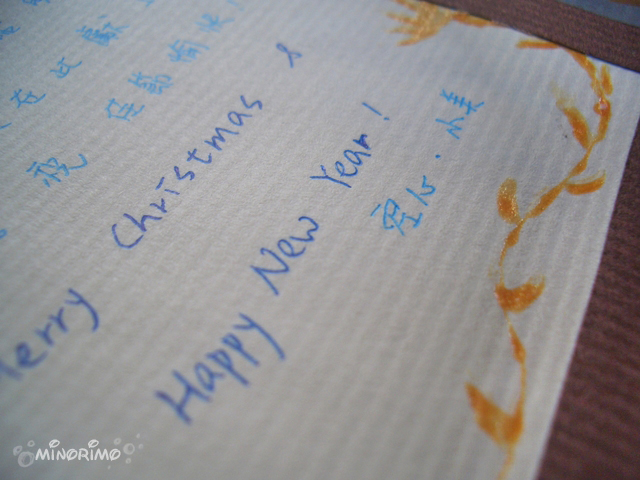 在此獻上
祝 佳節愉快!
Merry Christmas &
Happy New Year!
空心．小美
MINORIMO